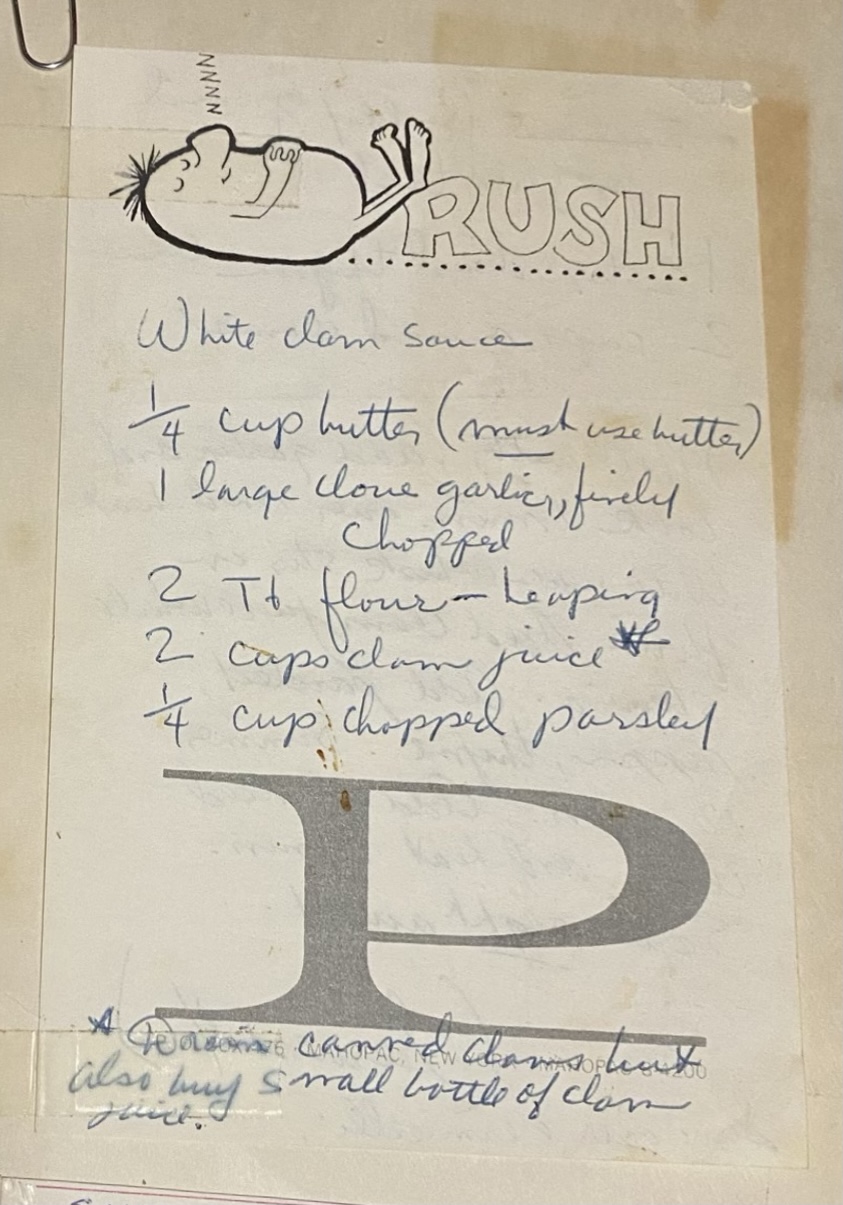 NNNN
RUSH
White clam sauce
1/4 cup butter (must use butter)
1 large clove garlic, finely
chopped
2 Tb flour - heaping
2 cups clam juice *
1/4 cup chopped parsley
P
* Drain canned clams but
MAHOPAC, NEW YORK
also buy small bottle of clam
juice.